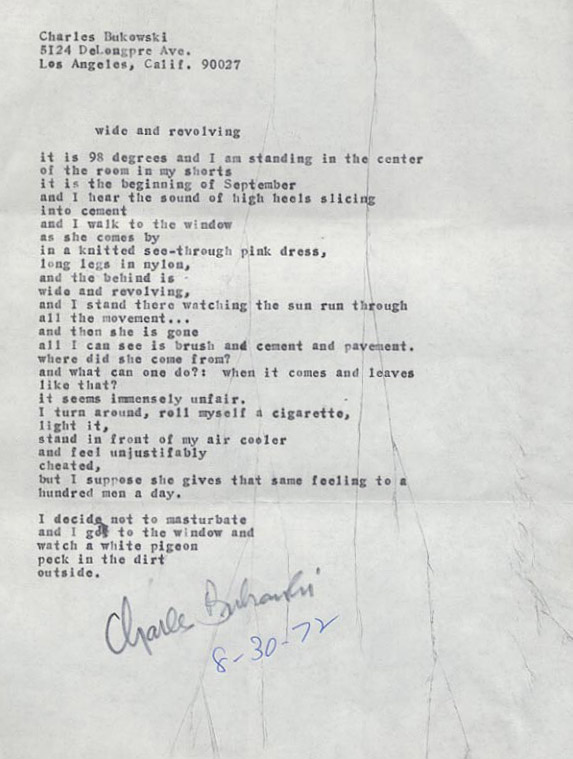 Charles Bukowski
5124 DeLongpre Ave.
Los Angeles, Calif. 90027
wide and revolving
it is 98 degrees and I am standing in the center
of the room in my shorts
it is the beginning of September
and I hear the sound of high heels slicing
into cement
and I walk to the window
as she comes by
in a knitted see-through pink dress,
long legs in nylon,
and the behind is
wide and revolving,
and I stand there watching the sun run through
all the movement...
and then she is gone
all I can see is brush and cement and pavement.
where did she come from?
and what can one do?: when it comes and leaves
like that?
it seems immensely unfair.
I turn around, roll myself a cigarette,
light it,
stand in front of my air cooler
and feel unjustifably
cheated,
but I suppose she gives that same feeling to a
hundred men a day.
I decide not to masturbate
and I go to the window and
watch a white pigeon
peck in the dirt
outside.
Charles Bukowski
8-30-72